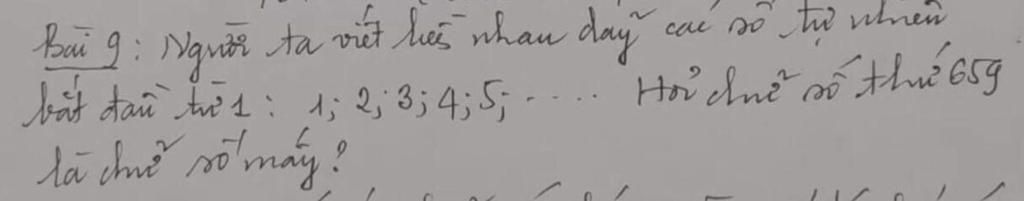 Bài 9: Người ta viết liền nhau dãy các số tự nhiên
bắt đầu từ 1: 1; 2; 3; 4; 5; ..... Hỏi chữ số thứ 659
là chữ số mấy?